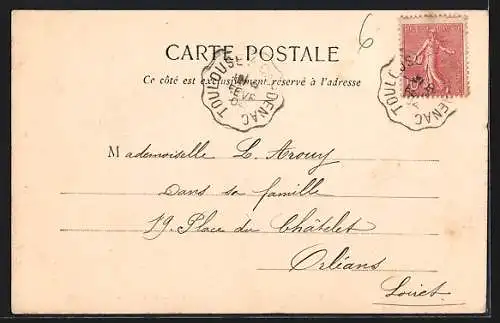 6
CARTE POSTALE
Ce côté est exclusivement réservé à l'adresse
TOULOUSE
DENAC
TOULOUSE
DENAC
Mademoiselle L. Arouy
Dans sa famille
19. Place du Châtelet
Orléans
Loiret.